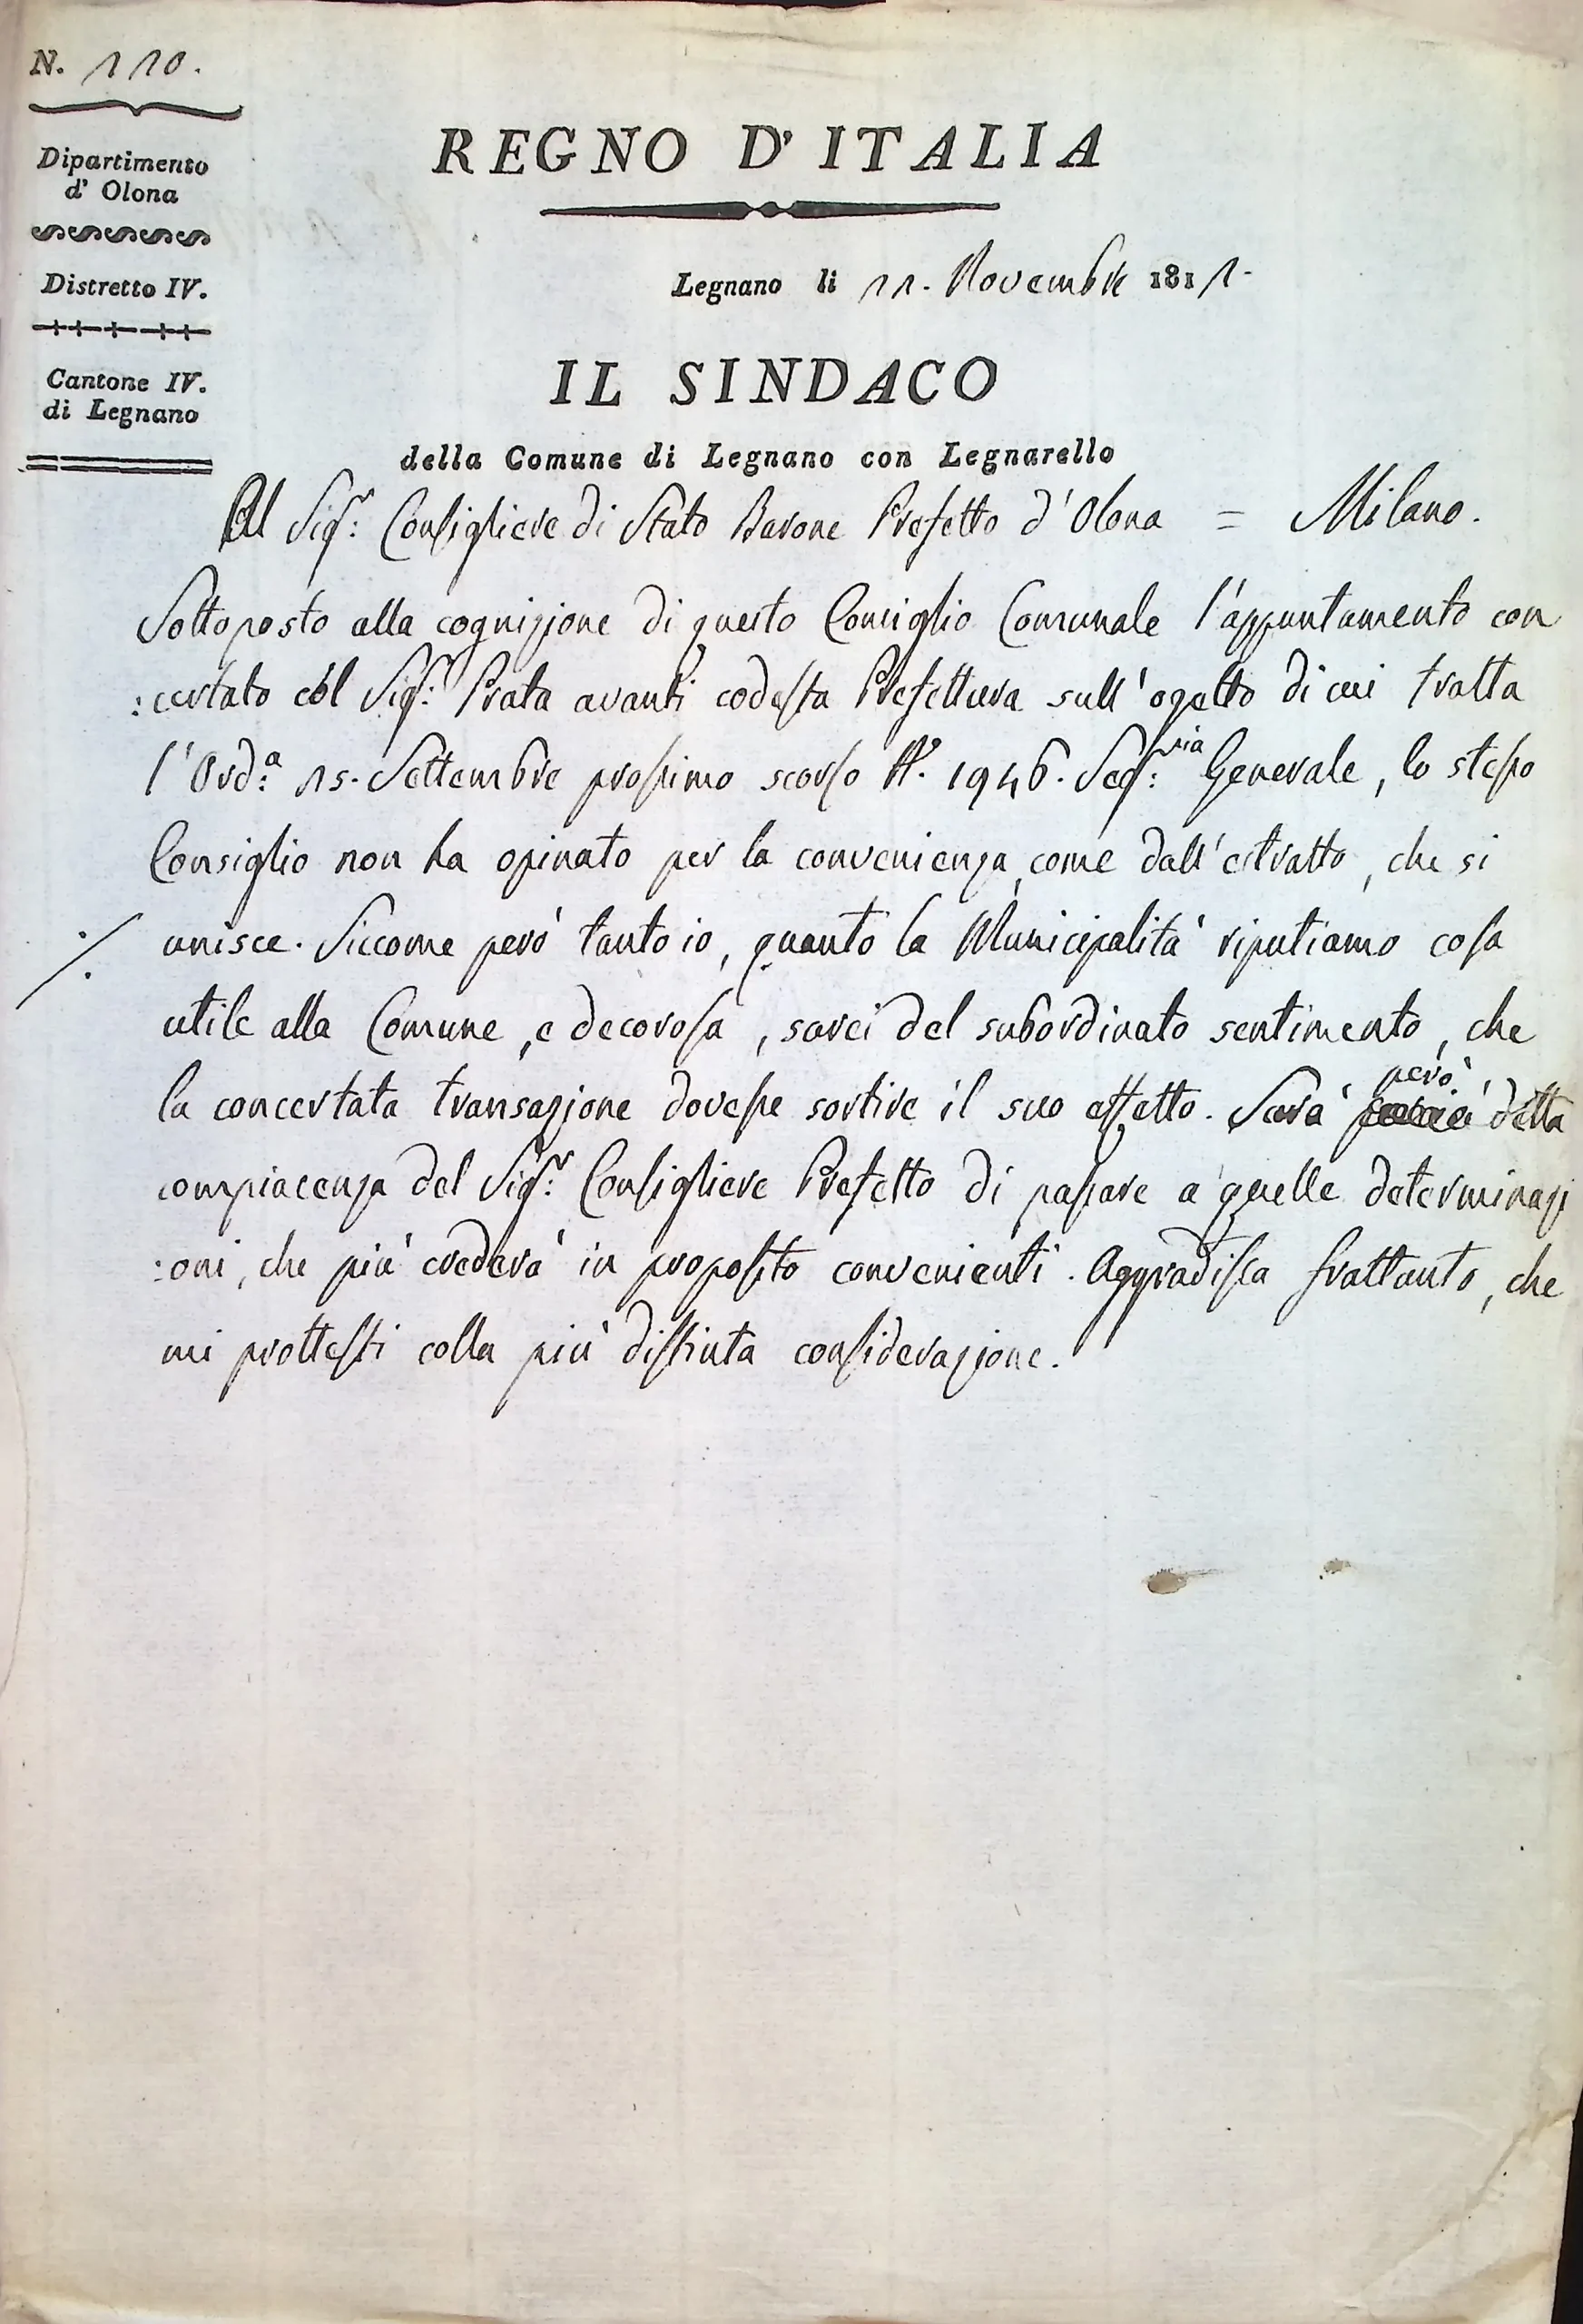 N. 110.
Dipartimento
d' Olona
Distretto IV.
Cantone IV.
di Legnano
REGNO D'ITALIA
Legnano li 11. Novembre 1811.
IL SINDACO
della Comune di Legnano con Legnarello
Al Sigr: Consigliere di Stato Barone Prefetto d'Olona = Milano.
Sottoposto alla cognizione di questo Consiglio Comunale l'appuntamento con
:certato col Sigr: Prata avanti codesta Prefettura sull'ogetto di cui tratta
l'Ord:a 15. Settembre prossimo scorso N. 1946. Seg:ria Generale, lo stesso
Consiglio non ha opinato per la convenienza, come dall'estratto, che si
unisce. Siccome però tanto io, quanto la Municipalità riputiamo cosa
utile alla Comune, e decorosa, sarei del subordinato sentimento, che
la concertata transazione dovesse sortire il suo effetto. Sarà però detta
compiacenza del Sigr: Consigliere Prefetto di passare a quelle determinazi
:oni, che più crederà in proposito convenienti. Aggradisca frattanto, che
mi prottesti colla più distinta considerazione.